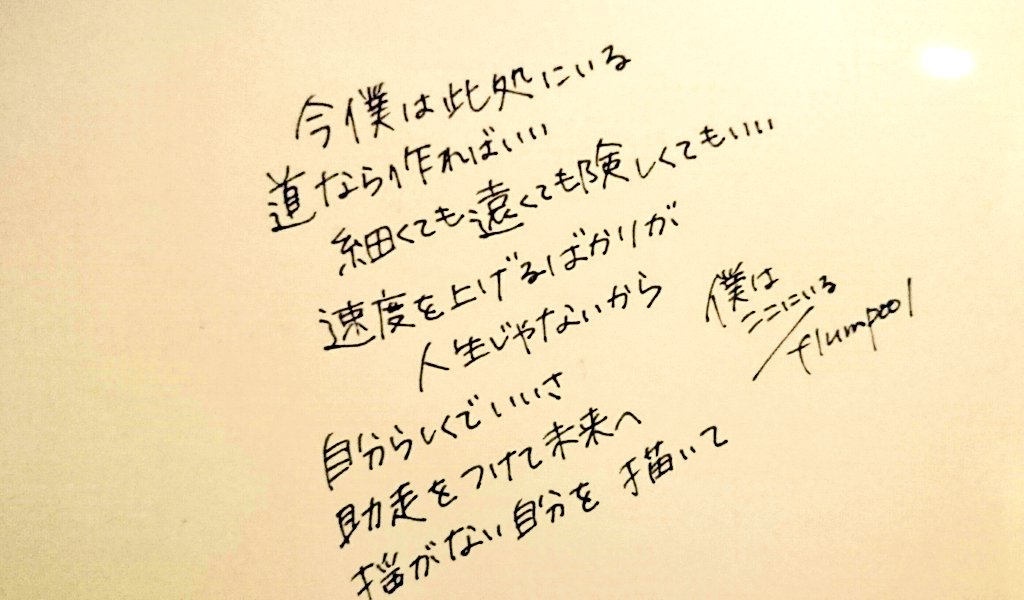 今僕は此処にいる
道なら作ればいい
細くても遠くても険しくてもいい
速度を上げるばかりが
人生じゃないから
自分らしくでいいさ
助走をつけて未来へ
揺がない自分を描いて
僕は
ここにいる
/flumpool